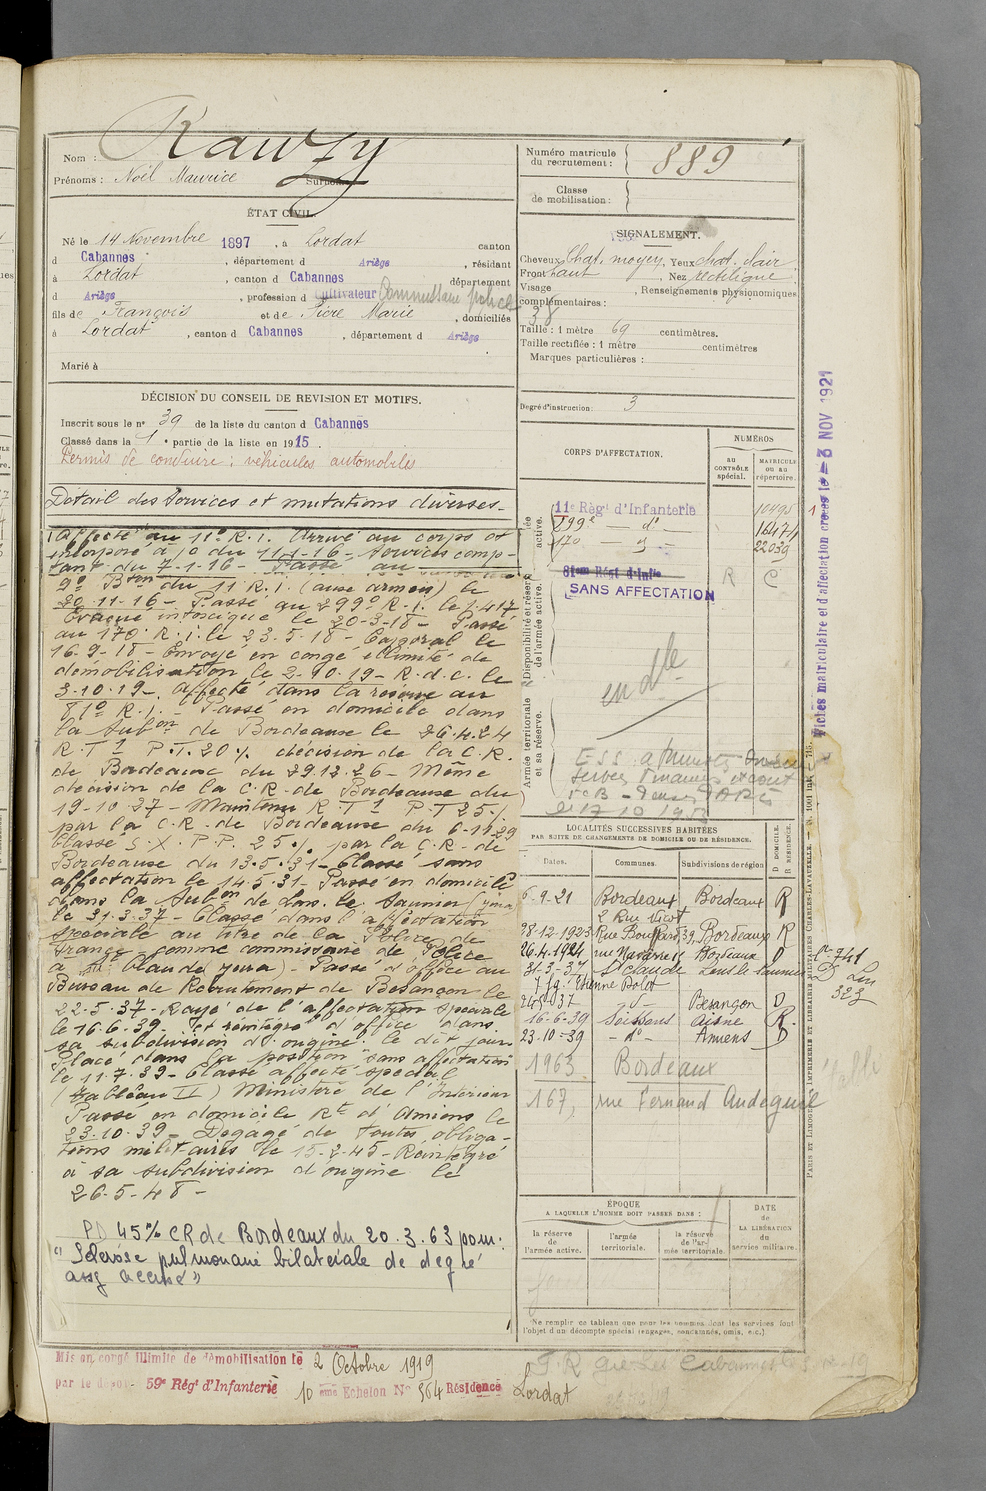 Nom : Rauzy
Prénoms : Noël Maurice Surnoms
ÉTAT CIVIL.
Né le 14 Novembre 1897, à Lordat canton
d Cabannes, département d Ariège, résidant
à Lordat, canton d Cabannes département
d Ariège, profession d Cultivateur Commissaire police
fils de François et de Pierre Marie, domiciliés
à Lordat, canton d Cabannes, département d Ariège
Marié à
DÉCISION DU CONSEIL DE REVISION ET MOTIFS.
Inscrit sous le n° 39 de la liste du canton d Cabannes
Classé dans la 1e partie de la liste en 1915.
Permis de conduire : véhicules automobiles
Détail des Services et mutations diverses
Affecté au 11e R.I. Arrivé au corps et
incorporé à/c du 11-1-16 - Services comp-
tant du 7-1-16 - Passé au
9e Bton du 11 R.I. (aux armées) le
20-11-16 - Passé au 299e R.I. le 1-4-17
Évacué intoxiqué le 20-3-18 - Passé
au 170e R.I. le 23.5.18 - Caporal le
16-9-18 - Envoyé en congé illimité de
démobilisation le 2-10.19 - R.d.C. le
3-10.19 - Affecté dans la réserve au
81e R.I. - Passé en domicile dans
la Subon de Bordeaux le 26.4.24
R.T1 P.T. 20% décision de la C.R.
de Bordeaux du 29.12.26 - Même
décision de la C.R. de Bordeaux du
19-10-27 - Maintenu R.T1 P.T 25%
par la C.R. de Bordeaux du 6-11-29
Classé S.X. P.P. 25% par la C.R. de
Bordeaux du 13.5.31 - Classé sans
affectation le 14.5.31 - Passé en domicile
dans la Subon de Lons le Saunier (Jura)
le 31.3.37 - Classé dans l'affectation
spéciale au titre de la Police de
France comme commissaire de Police
à St Claude (Jura) - Passé d'office au
Bureau de Recrutement de Besançon le
22-5-37 - Rayé de l'affectation spéciale
le 16.6.39 - et réintégré d'office dans
sa subdivision d'origine le dit jour
Placé dans la position sans affectation
le 11.7.39 - Classé affecté spécial
(Tableau II) Ministère de l'Intérieur
Passé en domicile Rt d'Amiens le
23.10.39 - Dégagé de toutes obliga-
tions militaires le 15-2-45 - Réintégré
à sa subdivision d'origine le
26-5-48 -
PD 45% CR de Bordeaux du 20.3.63 pour :
"Sclérose pulmonaire bilatérale de degré
assez accusé"
Mis en congé illimité de démobilisation le 2 Octobre 1919
par le dépôt 59e Régt d'Infanterie 10 ème Echelon N° 564 Résidence Lordat
Numéro matricule
du recrutement : 889
Classe
de mobilisation :
SIGNALEMENT.
Cheveux Chat. moyen, Yeux chat. clair
Front haut, Nez rectiligne
Visage , Renseignements physionomiques
complémentaires :
38
Taille : 1 mètre 69 centimètres.
Taille rectifiée : 1 mètre centimètres
Marques particulières :
Degré d'instruction : 3
CORPS D'AFFECTATION.
NUMÉROS
au
CONTRÔLE
spécial.
MATRICULE
ou au
répertoire.
Disponibilité et réserve de l'armée active.
11e Régt d'Infanterie 10495
299e — do — 16474
170 — do — 22039
81eme Régt d'Infie R C
SANS AFFECTATION
Armée territoriale et sa réserve.
LOCALITÉS SUCCESSIVES HABITÉES
PAR SUITE DE CHANGEMENTS DE DOMICILE OU DE RÉSIDENCE.
Dates. Communes. Subdivisions de région D DOMICILE. R RÉSIDENCE.
6-9-21 Bordeaux Bordeaux R
28-12-1923 Bordeaux R
26.4.1924 rue Navarre 15 Bordeaux D
31-3-37 St Claude Lons le Saunier
7 fg. Etienne Bolot
24-5-37 -d°- Besançon D
16-6-39 Soissons Aisne R
23.10-39 -d°- Amiens D
1963 Bordeaux
167, rue Fernand Audeguil
ÉPOQUE
A LAQUELLE L'HOMME DOIT PASSER DANS :
la réserve
de
l'armée active.
l'armée
territoriale.
la réserve
de l'ar-
mée territoriale.
DATE
de
LA LIBÉRATION
du
service militaire.
Ne remplir ce tableau que pour les hommes dont les services font
l'objet d'un décompte spécial (engagés, condamnés, omis, etc.)
Fiches matriculaire et d'affectation créées le - 3 NOV 1921
PARIS ET LIMOGES, IMPRIMERIE ET LIBRAIRIE MILITAIRES CHARLES-LAVAUZELLE.